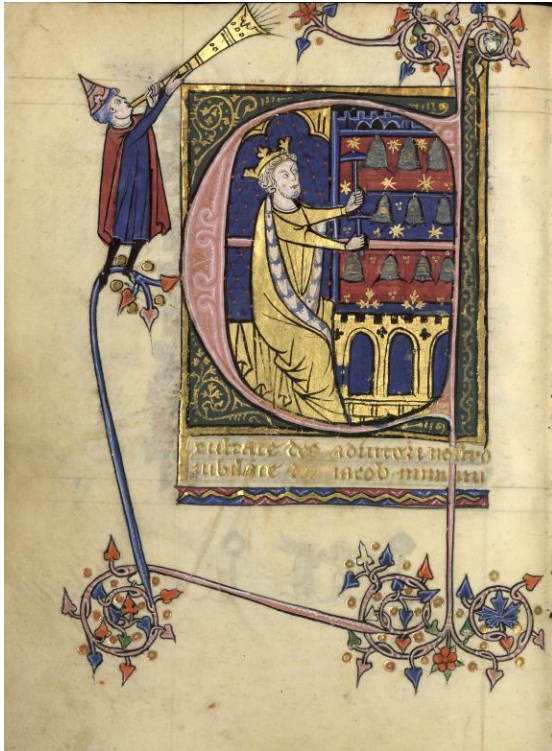 Exultate deo adiutori nostro
iubilate deo iacob